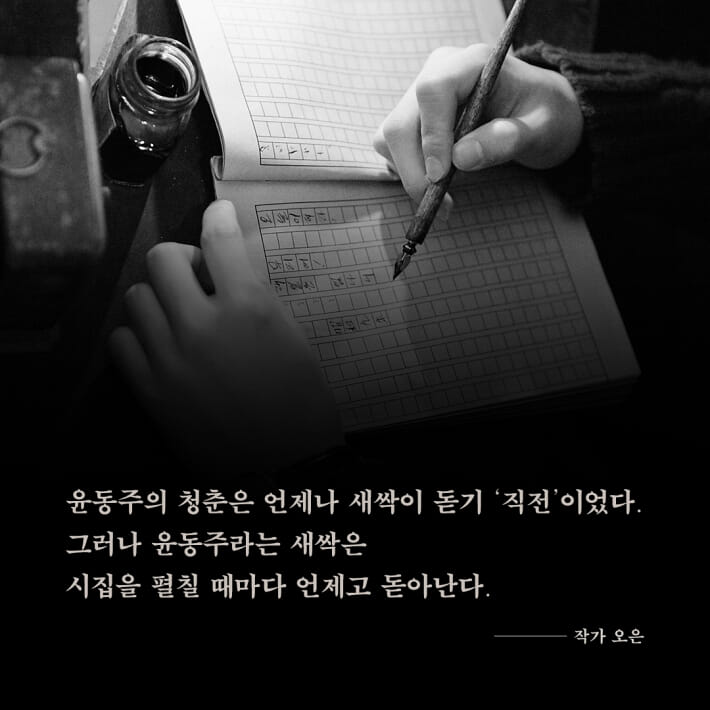 윤동주의 청춘은 언제나 새싹이 돋기 ‘직전’이었다.
그러나 윤동주라는 새싹은
시집을 펼칠 때마다 언제고 돋아난다.
작가 오은